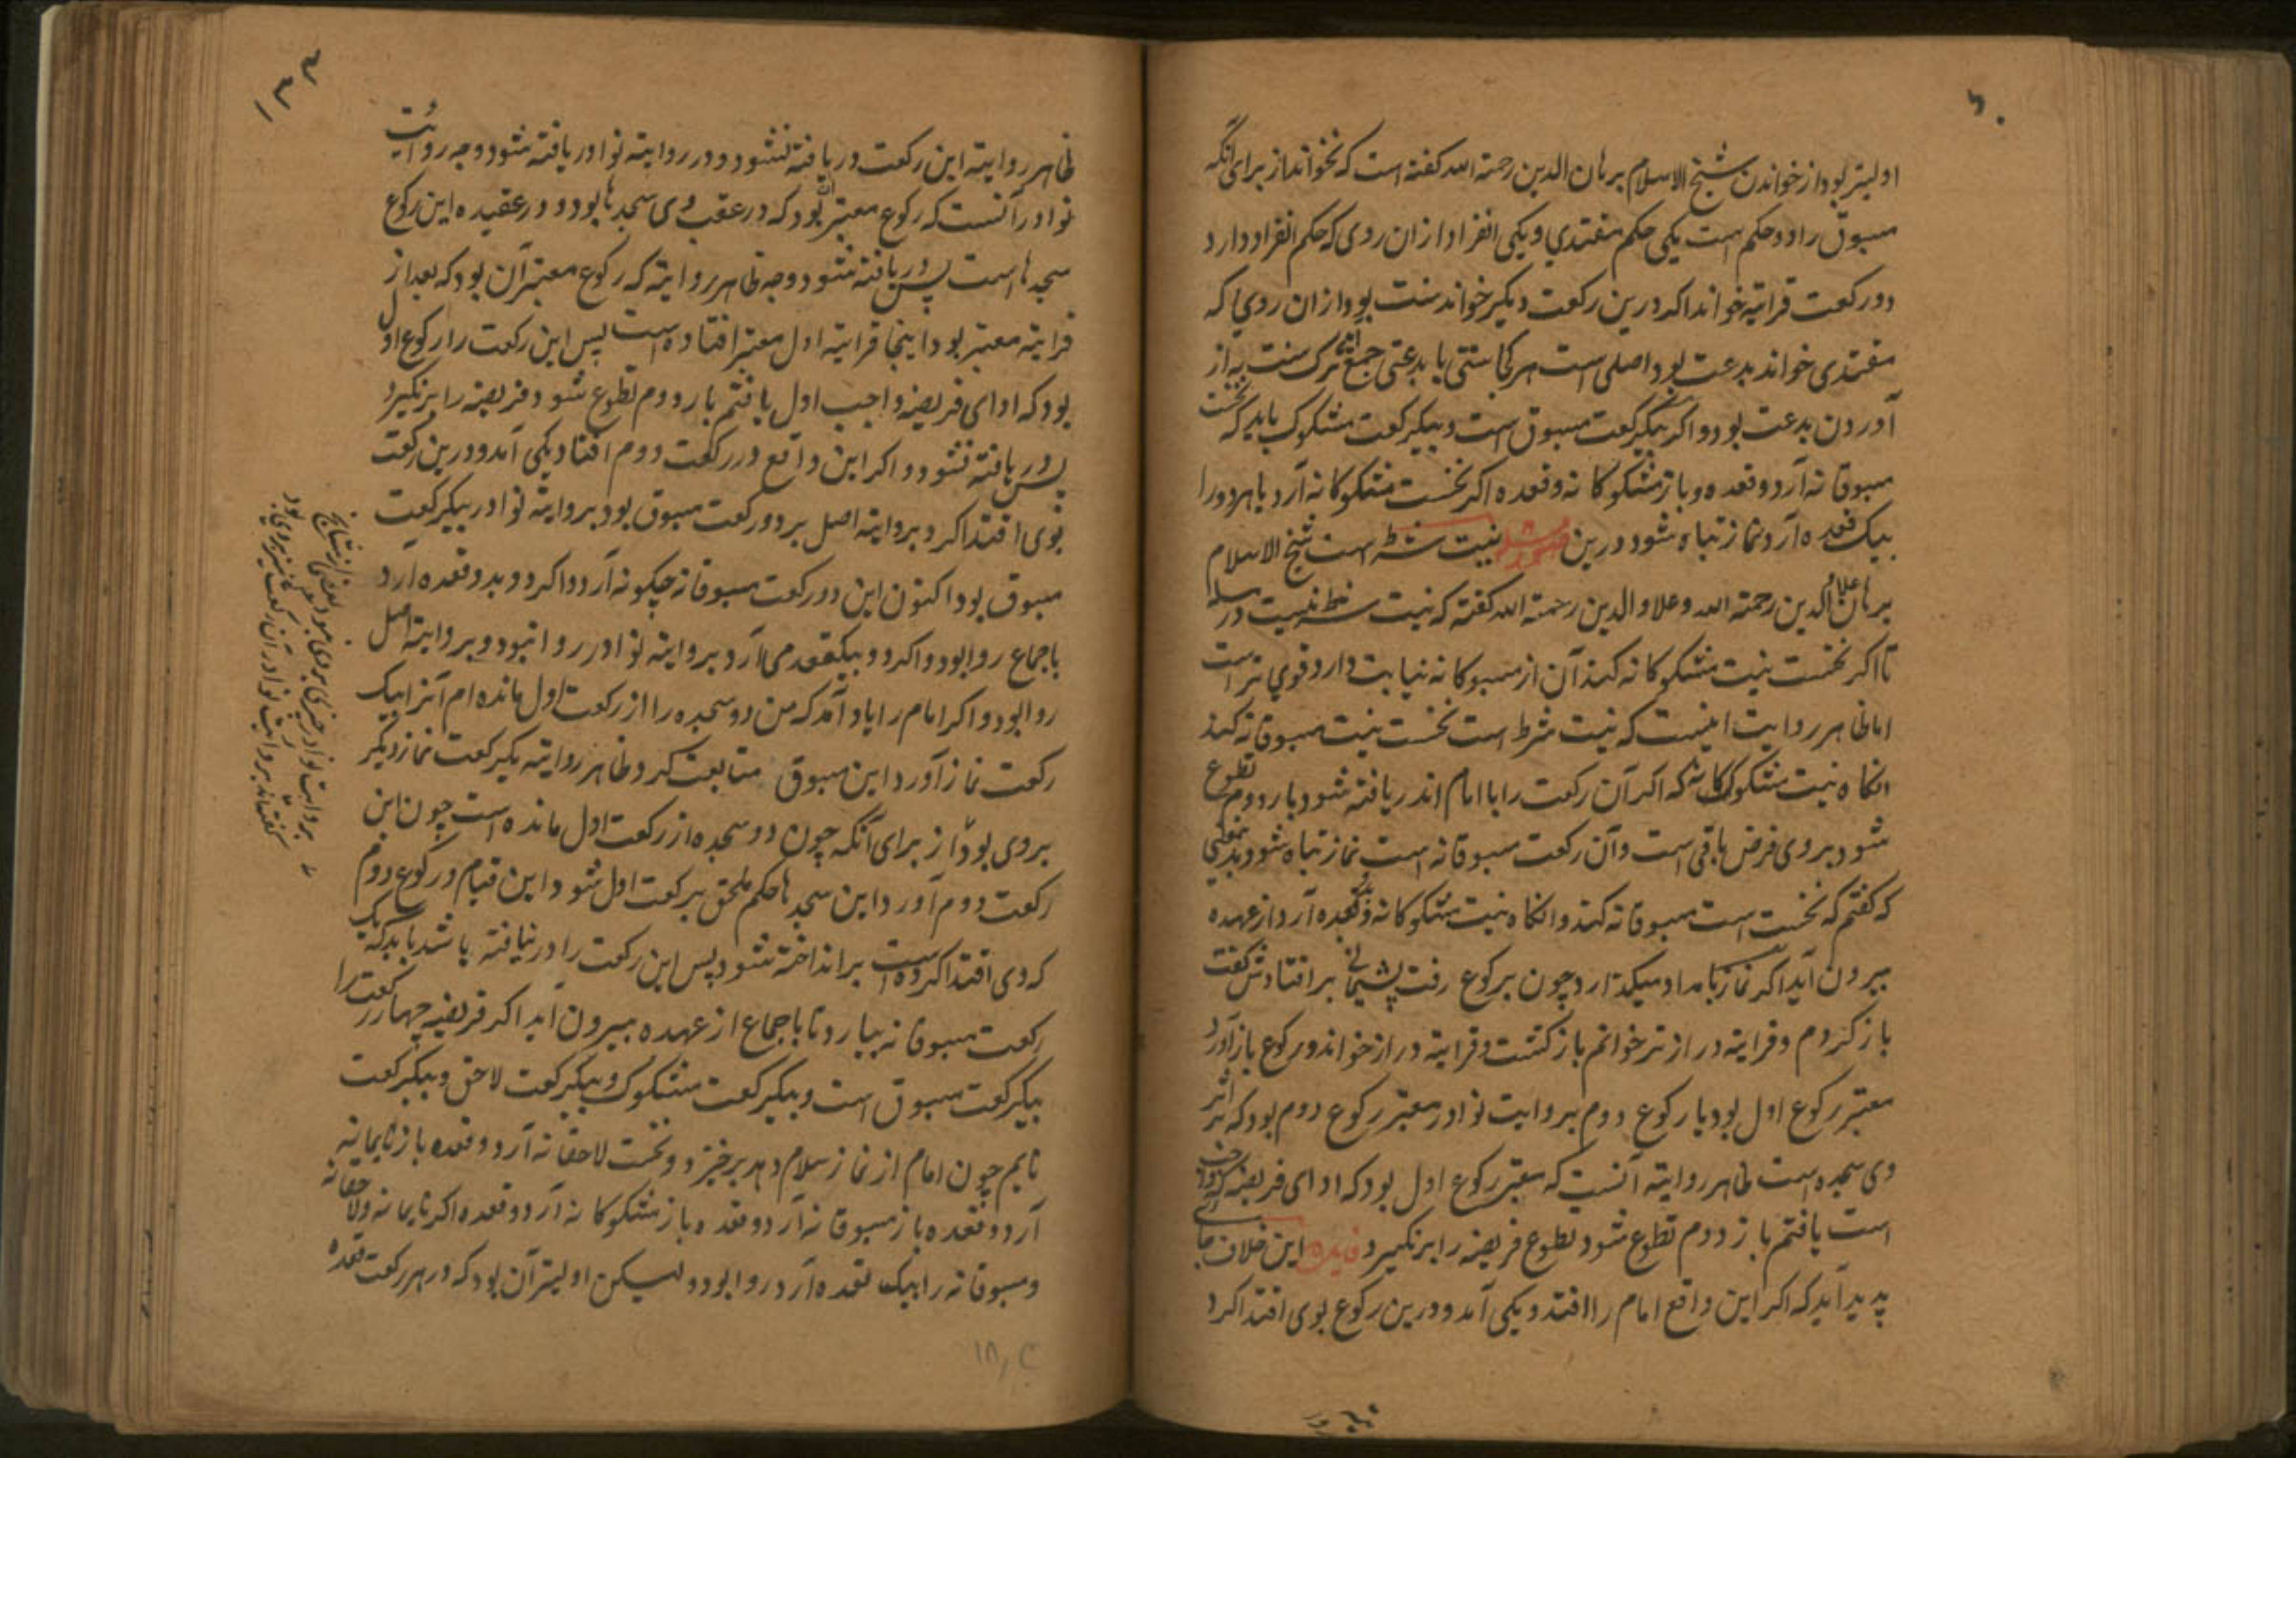 اولیتر بود از خواندن شیخ الاسلام برهان الدین رحمة الله گفته است که نخواند از برای آنکه
مسبوق را دو حکم است یکی حکم مقتدی و یکی انفراد از ان روی که حکم انفراد دارد
دو رکعت قرایة خواند اکر درین رکعت دیگر خواند سنت بود از ان روی که
مقتدی خواند بدعت بود اصلی است هر کجا سنتی با بدعتی جمع ترک سنت به از
آوردن بدعت بود و اکر بیکرکعت مسبوق است و بیکرکعت مشکوک باید که نخست
مسبوقانه آرد و قعده و باز مشکوکانه و قعده اکر نخست مشکوکانه آرد یا هر دو را
بیک قعده آرد نماز تباه شود درین نیت شرط است شیخ الاسلام
برهان الدین رحمة الله و علاو الدین رحمة الله گفته که نیت شرط نیست در
تا اکر نخست نیت مشکوکانه کند آن از مسبوکانه نیابت دارد قوی تر است
اما ظاهر روایت اینست که نیت شرط است نخست نیت مسبوقانه کند
انکاه نیت مشکوکانه که اکر آن رکعت را با امام اندر یافته شود بار دوم تطوع
شود بر وی فرض باقی است و آن رکعت مسبوقانه است نماز تباه شود
که گفتم که نخست است مسبوقانه کند و انکاه نیت مشکوکانه و قعده آرد از عهده
بیرون آید اکر نماز بامداد میکذارد چون برکوع رفت پشیمانی بر افتادش گفت
باز کردم و قرایة دراز تر خوانم باز کشت و قرایة دراز خواند و رکوع باز آورد
معتبر رکوع اول بود یا رکوع دوم بروایت نوادر معتبر رکوع دوم بود که
وی سجده است ظاهر روایة آنست که معتبر رکوع اول بود که ادای فریضه
است یافتم باز دوم تطوع شود تطوع فریضه را بر نکیرد فایده این خلاف جای
پدید آید که اکر این واقع امام را افتد و یکی آمد و درین رکوع بوی اقتدا کرد
ظاهر روایة این رکعت دریافته نشود و در روایة نوادر یافته شود و وجه روایت
نوادر آنست که رکوع معتبر بود که در عقب وی سجدها بود و در عقیده این رکوع
سجدها است پس دریافته شود و وجه ظاهر روایة که رکوع معتبر آن بود که بعد از
قرایة معتبر بود اینجا قرایة اول معتبر افتاده است پس این رکعت را رکوع اول
بود که ادای فریضه واجب اول یافتم بار دوم تطوع شود فریضه را بر نکیرد
پس دریافته نشود و اکر این واقع در رکعت دوم افتاد یکی آمد و درین رکعت
بوی اقتدا کرد بروایة اصل بر دو رکعت مسبوق بود بروایة نوادر بیکرکعت
مسبوق بود اکنون این دو رکعت مسبوقانه چکونه آرد و اکر دو بدو قعده آرد
باجماع روا بود و اکر دو بیکقعده می آرد بروایة نوادر روا نبود و بروایة اصل
روا بود و اکر امام را یاد آمد که من دو سجده را از رکعت اول مانده ام آنرا بیک
رکعت نماز آورد این مسبوق متابعت کرد ظاهر روایة یکرکعت نماز دیگر
بر وی بود از برای آنکه چون دو سجده از رکعت اول مانده است چون این
رکعت دوم آورد این سجدها حکم ملحق برکعت اول شود این قیام و رکوع دوم
که وی اقتدا کرده است بر انداخته شود پس این رکعت را در نیافته باشد باید که یک
رکعت مسبوقانه بیارد تا باجماع از عهده بیرون آید اکر فریضه چهار رکعت را
بیکرکعت مسبوق است و بیکرکعت مشکوک و بیکرکعت لاحق و بیکرکعت
نایم چون امام از نماز سلام دهد برخیزد و نخست لاحقانه آرد و قعده باز نایمانه
آرد و قعده باز مسبوقانه آرد و قعده و باز مشکوکانه آرد و قعده اکر نایمانه و لاحقانه
و مسبوقانه را بیک قعده آرد روا بود و لیکن اولیتر آن بود که در هر رکعت قعده